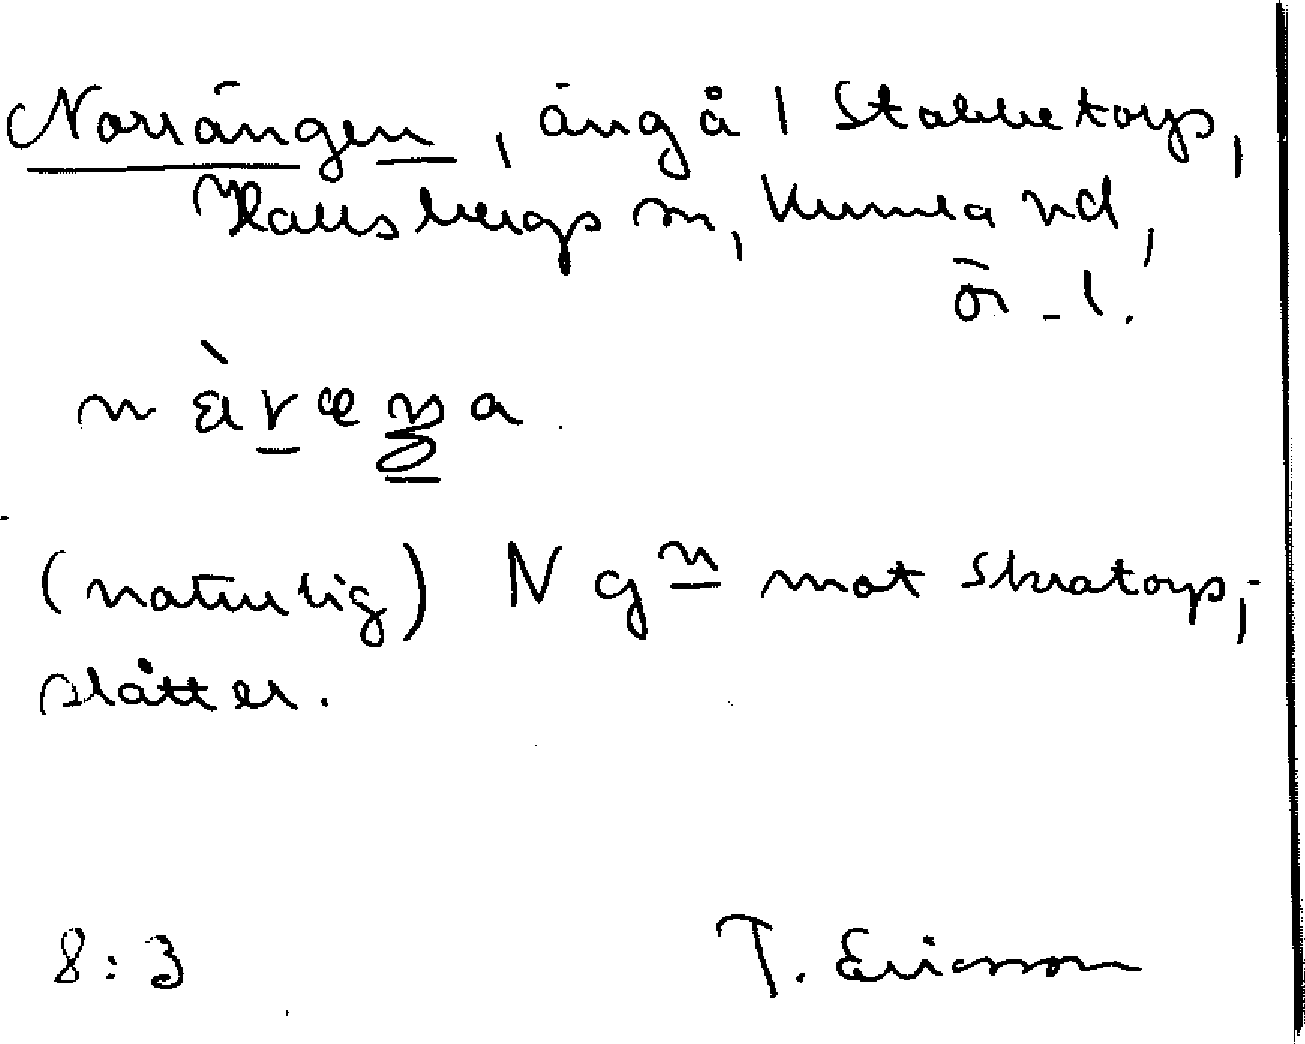 Norrängen, äng å 1 Stabbetorp,
Hallsbergs sn, Kumla hd,
Ör. l.
(naturlig) N gn mot Skratorp,
slåtter.
8:3
T. Ericsson